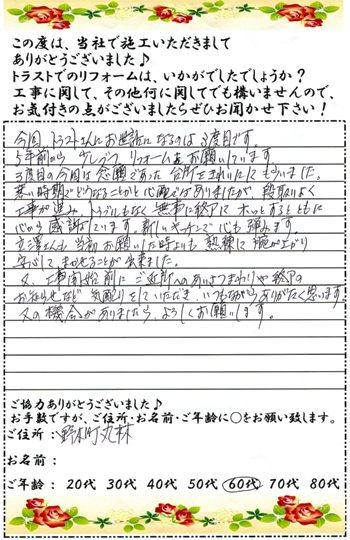 この度は、当社で施工いただきまして
ありがとうございました♪
トラストでのリフォームは、いかがでしたでしょうか?
工事に関して、その他何に関してでも構いませんので、
お気付きの点がございましたらぜひお聞かせ下さい!
今回、トラストさんにお世話になるのは3度目です。
5年前から リフォームをお願いしています。
3度目の今回は念願であった台所をきれいにしてもらいました。
寒い時期でどうなることかと心配ではありましたが、段取りよく
工事が進み トラブルもなく無事に終了に ホッとするとともに
心から感謝しています。新しいキッチンで心も弾みます。
立澤さんも当初お願いした時よりも熟練に腕が上がり
安心して、まかせることが出来ました。
又、工事開始前に ご近所へのあいさつまわりや終了の
お知らせなど 気配りをしていただき、いつもながらありがたく思います。
又の機会がありましたら、よろしくお願いします。
ご協力ありがとうございました♪
お手数ですが、ご住所・お名前・ご年齢に○をお願い致します。
ご住所:野木町丸林
お名前:
ご年齢: 20代 30代 40代 50代 60代 70代 80代